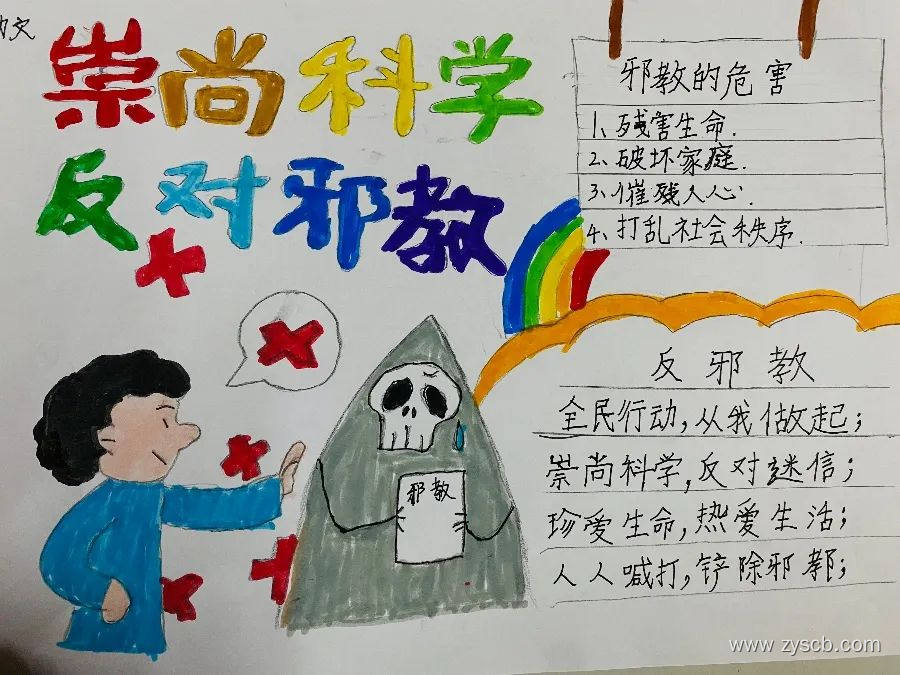 崇尚科学
反对邪教
邪教的危害
1、残害生命.
2、破坏家庭.
3、催残人心.
4、打乱社会秩序.
邪教
反邪教
全民行动,从我做起;
崇尚科学,反对迷信;
珍爱生命,热爱生活;
人人喊打,铲除邪;
www.zyscb.com